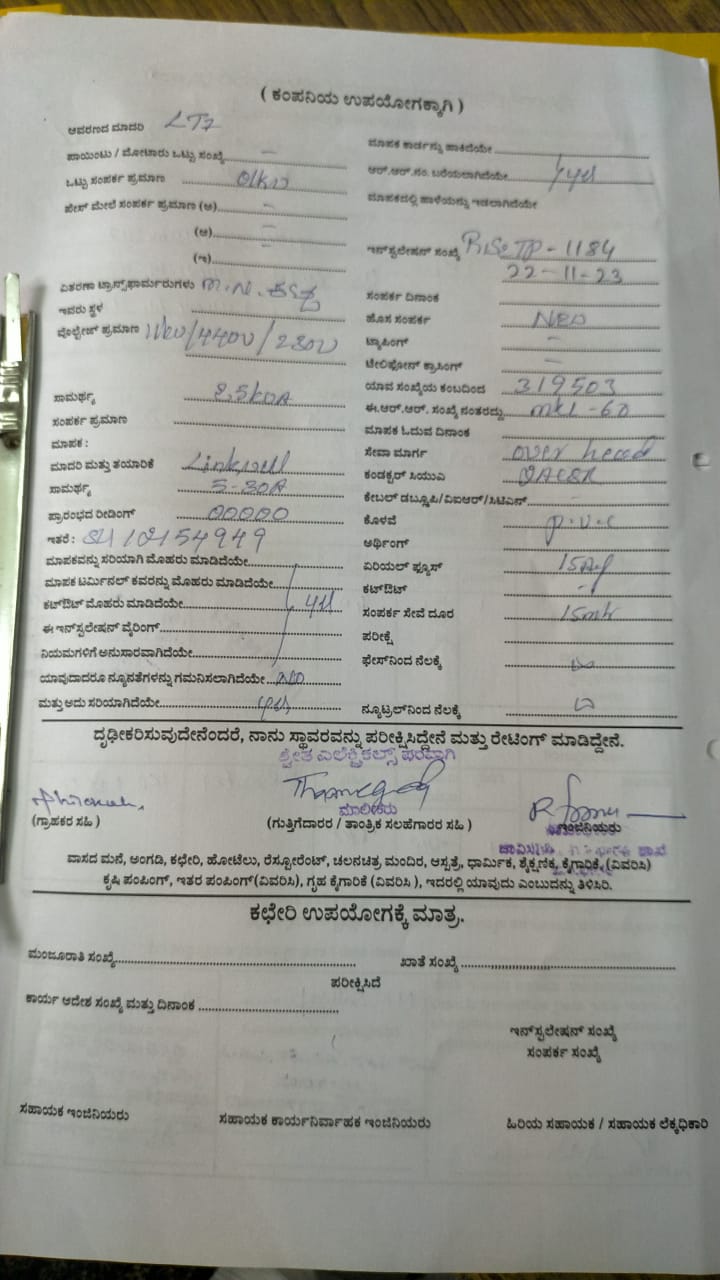 ( ಕಂಪನಿಯ ಉಪಯೋಗಕ್ಕಾಗಿ )
ಆವರಣದ ಮಾದರಿ LT7
ಪಾಯಿಂಟು / ಮೋಟಾರು ಒಟ್ಟು ಸಂಖ್ಯೆ –
ಒಟ್ಟು ಸಂಪರ್ಕ ಪ್ರಮಾಣ
ಫೇಸ್ ಮೇಲೆ ಸಂಪರ್ಕ ಪ್ರಮಾಣ (ಅ) –
(ಆ) –
(ಇ) –
ವಿತರಣಾ ಟ್ರಾನ್ಸ್‌ಫಾರ್ಮರುಗಳು
ಇವರು ಸ್ಥಳ
ವೊಲ್ಟೇಜ್ ಪ್ರಮಾಣ 11kv/440v/230v
ಸಾಮರ್ಥ್ಯ
ಸಂಪರ್ಕ ಪ್ರಮಾಣ
ಮಾಪಕ :
ಮಾದರಿ ಮತ್ತು ತಯಾರಿಕೆ Linkwell
ಸಾಮರ್ಥ್ಯ 5-30A
ಪ್ರಾರಂಭದ ರೀಡಿಂಗ್ 00000
ಇತರೆ : 10154949
ಮಾಪಕವನ್ನು ಸರಿಯಾಗಿ ಮೊಹರು ಮಾಡಿದೆಯೇ
ಮಾಪಕ ಟರ್ಮಿನಲ್ ಕವರನ್ನು ಮೊಹರು ಮಾಡಿದೆಯೇ
ಕಟ್‌ಔಟ್ ಮೊಹರು ಮಾಡಿದೆಯೇ yes
ಈ ಇನ್‌ಸ್ಟಲೇಷನ್ ವೈರಿಂಗ್
ನಿಯಮಗಳಿಗೆ ಅನುಸಾರವಾಗಿದೆಯೇ
ಯಾವುದಾದರೂ ನ್ಯೂನತೆಗಳನ್ನು ಗಮನಿಸಲಾಗಿದೆಯೇ NO
ಮತ್ತು ಅದು ಸರಿಯಾಗಿದೆಯೇ yes
ಮಾಪಕ ಕಾರ್ಡನ್ನು ಹಾಕಿದೆಯೇ
ಆರ್.ಆರ್.ಸಂ. ಬರೆಯಲಾಗಿದೆಯೇ yes
ಮಾಪಕದಲ್ಲಿ ಹಾಳೆಯನ್ನು ಇಡಲಾಗಿದೆಯೇ
ಇನ್‌ಸ್ಟಲೇಷನ್ ಸಂಖ್ಯೆ TP-1184
22-11-23
ಸಂಪರ್ಕ ದಿನಾಂಕ
ಹೊಸ ಸಂಪರ್ಕ New
ಟ್ಯಾಪಿಂಗ್ –
ಟೆಲಿಫೋನ್ ಕ್ರಾಸಿಂಗ್ –
ಯಾವ ಸಂಖ್ಯೆಯ ಕಂಬದಿಂದ 319503
ಈ.ಆರ್.ಆರ್. ಸಂಖ್ಯೆ ನಂತರದ್ದು MKL-60
ಮಾಪಕ ಓದುವ ದಿನಾಂಕ
ಸೇವಾ ಮಾರ್ಗ over head
ಕಂಡಕ್ಟರ್ ಸಿಯುಎ
ಕೇಬಲ್ ಡಬ್ಲೂಪಿ/ವಿಐಆರ್/ಸಿಟಿಎಸ್ –
ಕೊಳವೆ p.v.c
ಅರ್ಥಿಂಗ್
ಏರಿಯಲ್ ಫ್ಯೂಸ್
ಕಟ್‌ಔಟ್
ಸಂಪರ್ಕ ಸೇವೆ ದೂರ 15mtr
ಪರೀಕ್ಷೆ
ಫೇಸ್‌ನಿಂದ ನೆಲಕ್ಕೆ
ನ್ಯೂಟ್ರಲ್‌ನಿಂದ ನೆಲಕ್ಕೆ
ದೃಢೀಕರಿಸುವುದೇನೆಂದರೆ, ನಾನು ಸ್ಥಾವರವನ್ನು ಪರೀಕ್ಷಿಸಿದ್ದೇನೆ ಮತ್ತು ರೇಟಿಂಗ್ ಮಾಡಿದ್ದೇನೆ.
ಶ್ವೇತ ಎಲೆಕ್ಟ್ರಿಕಲ್ಸ್ ಪರವಾಗಿ
ಮಾಲೀಕರು
(ಗ್ರಾಹಕರ ಸಹಿ )
(ಗುತ್ತಿಗೆದಾರರ / ತಾಂತ್ರಿಕ ಸಲಹೆಗಾರರ ಸಹಿ )
ಇಂಜಿನಿಯರು
ವಾಸದ ಮನೆ, ಅಂಗಡಿ, ಕಛೇರಿ, ಹೋಟೆಲು, ರೆಸ್ಟೋರೆಂಟ್, ಚಲನಚಿತ್ರ ಮಂದಿರ, ಆಸ್ಪತ್ರೆ, ಧಾರ್ಮಿಕ, ಶೈಕ್ಷಣಿಕ, ಕೈಗಾರಿಕೆ, (ವಿವರಿಸಿ)
ಕೃಷಿ ಪಂಪಿಂಗ್, ಇತರ ಪಂಪಿಂಗ್(ವಿವರಿಸಿ), ಗೃಹ ಕೈಗಾರಿಕೆ (ವಿವರಿಸಿ ), ಇದರಲ್ಲಿ ಯಾವುದು ಎಂಬುದನ್ನು ತಿಳಿಸಿರಿ.
ಕಛೇರಿ ಉಪಯೋಗಕ್ಕೆ ಮಾತ್ರ.
ಮಂಜೂರಾತಿ ಸಂಖ್ಯೆ
ಖಾತೆ ಸಂಖ್ಯೆ
ಪರೀಕ್ಷಿಸಿದೆ
ಕಾರ್ಯ ಆದೇಶ ಸಂಖ್ಯೆ ಮತ್ತು ದಿನಾಂಕ
ಇನ್‌ಸ್ಟಲೇಷನ್ ಸಂಖ್ಯೆ
ಸಂಪರ್ಕ ಸಂಖ್ಯೆ
ಸಹಾಯಕ ಇಂಜಿನಿಯರು
ಸಹಾಯಕ ಕಾರ್ಯನಿರ್ವಾಹಕ ಇಂಜಿನಿಯರು
ಹಿರಿಯ ಸಹಾಯಕ / ಸಹಾಯಕ ಲೆಕ್ಕಧಿಕಾರಿ